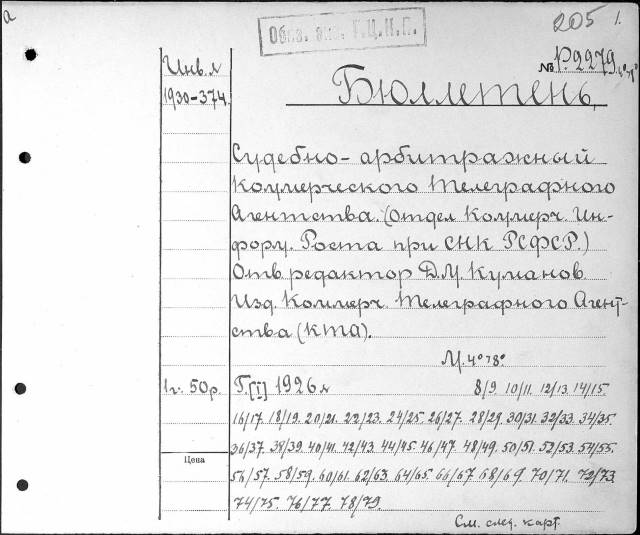 а
205 1.
Обяз. экз. Г.Ц.К.П.
Инв. л
№ Р.2279 4°-8°
1930-374.
Бюллетень,
Судебно-арбитражный
Коммерческого Телеграфного
Агентства. (Отдел Коммерч. Ин-
форм. Роста при СНК РСФСР.)
Отв. редактор Д.М. Куманов.
Изд. Коммерч. Телеграфного Агент-
ства (КТА).
М. 4°-8°.
1 г. 50 р. Г. [I] 1926 г. 8/9. 10/11. 12/13. 14/15.
16/17. 18/19. 20/21. 22/23. 24/25. 26/27. 28/29. 30/31. 32/33. 34/35.
36/37. 38/39. 40/41. 42/43. 44/45. 46/47. 48/49. 50/51. 52/53. 54/55.
Цена
56/57. 58/59. 60/61. 62/63. 64/65. 66/67. 68/69. 70/71. 72/73.
74/75. 76/77. 78/79.
См. след. карт.